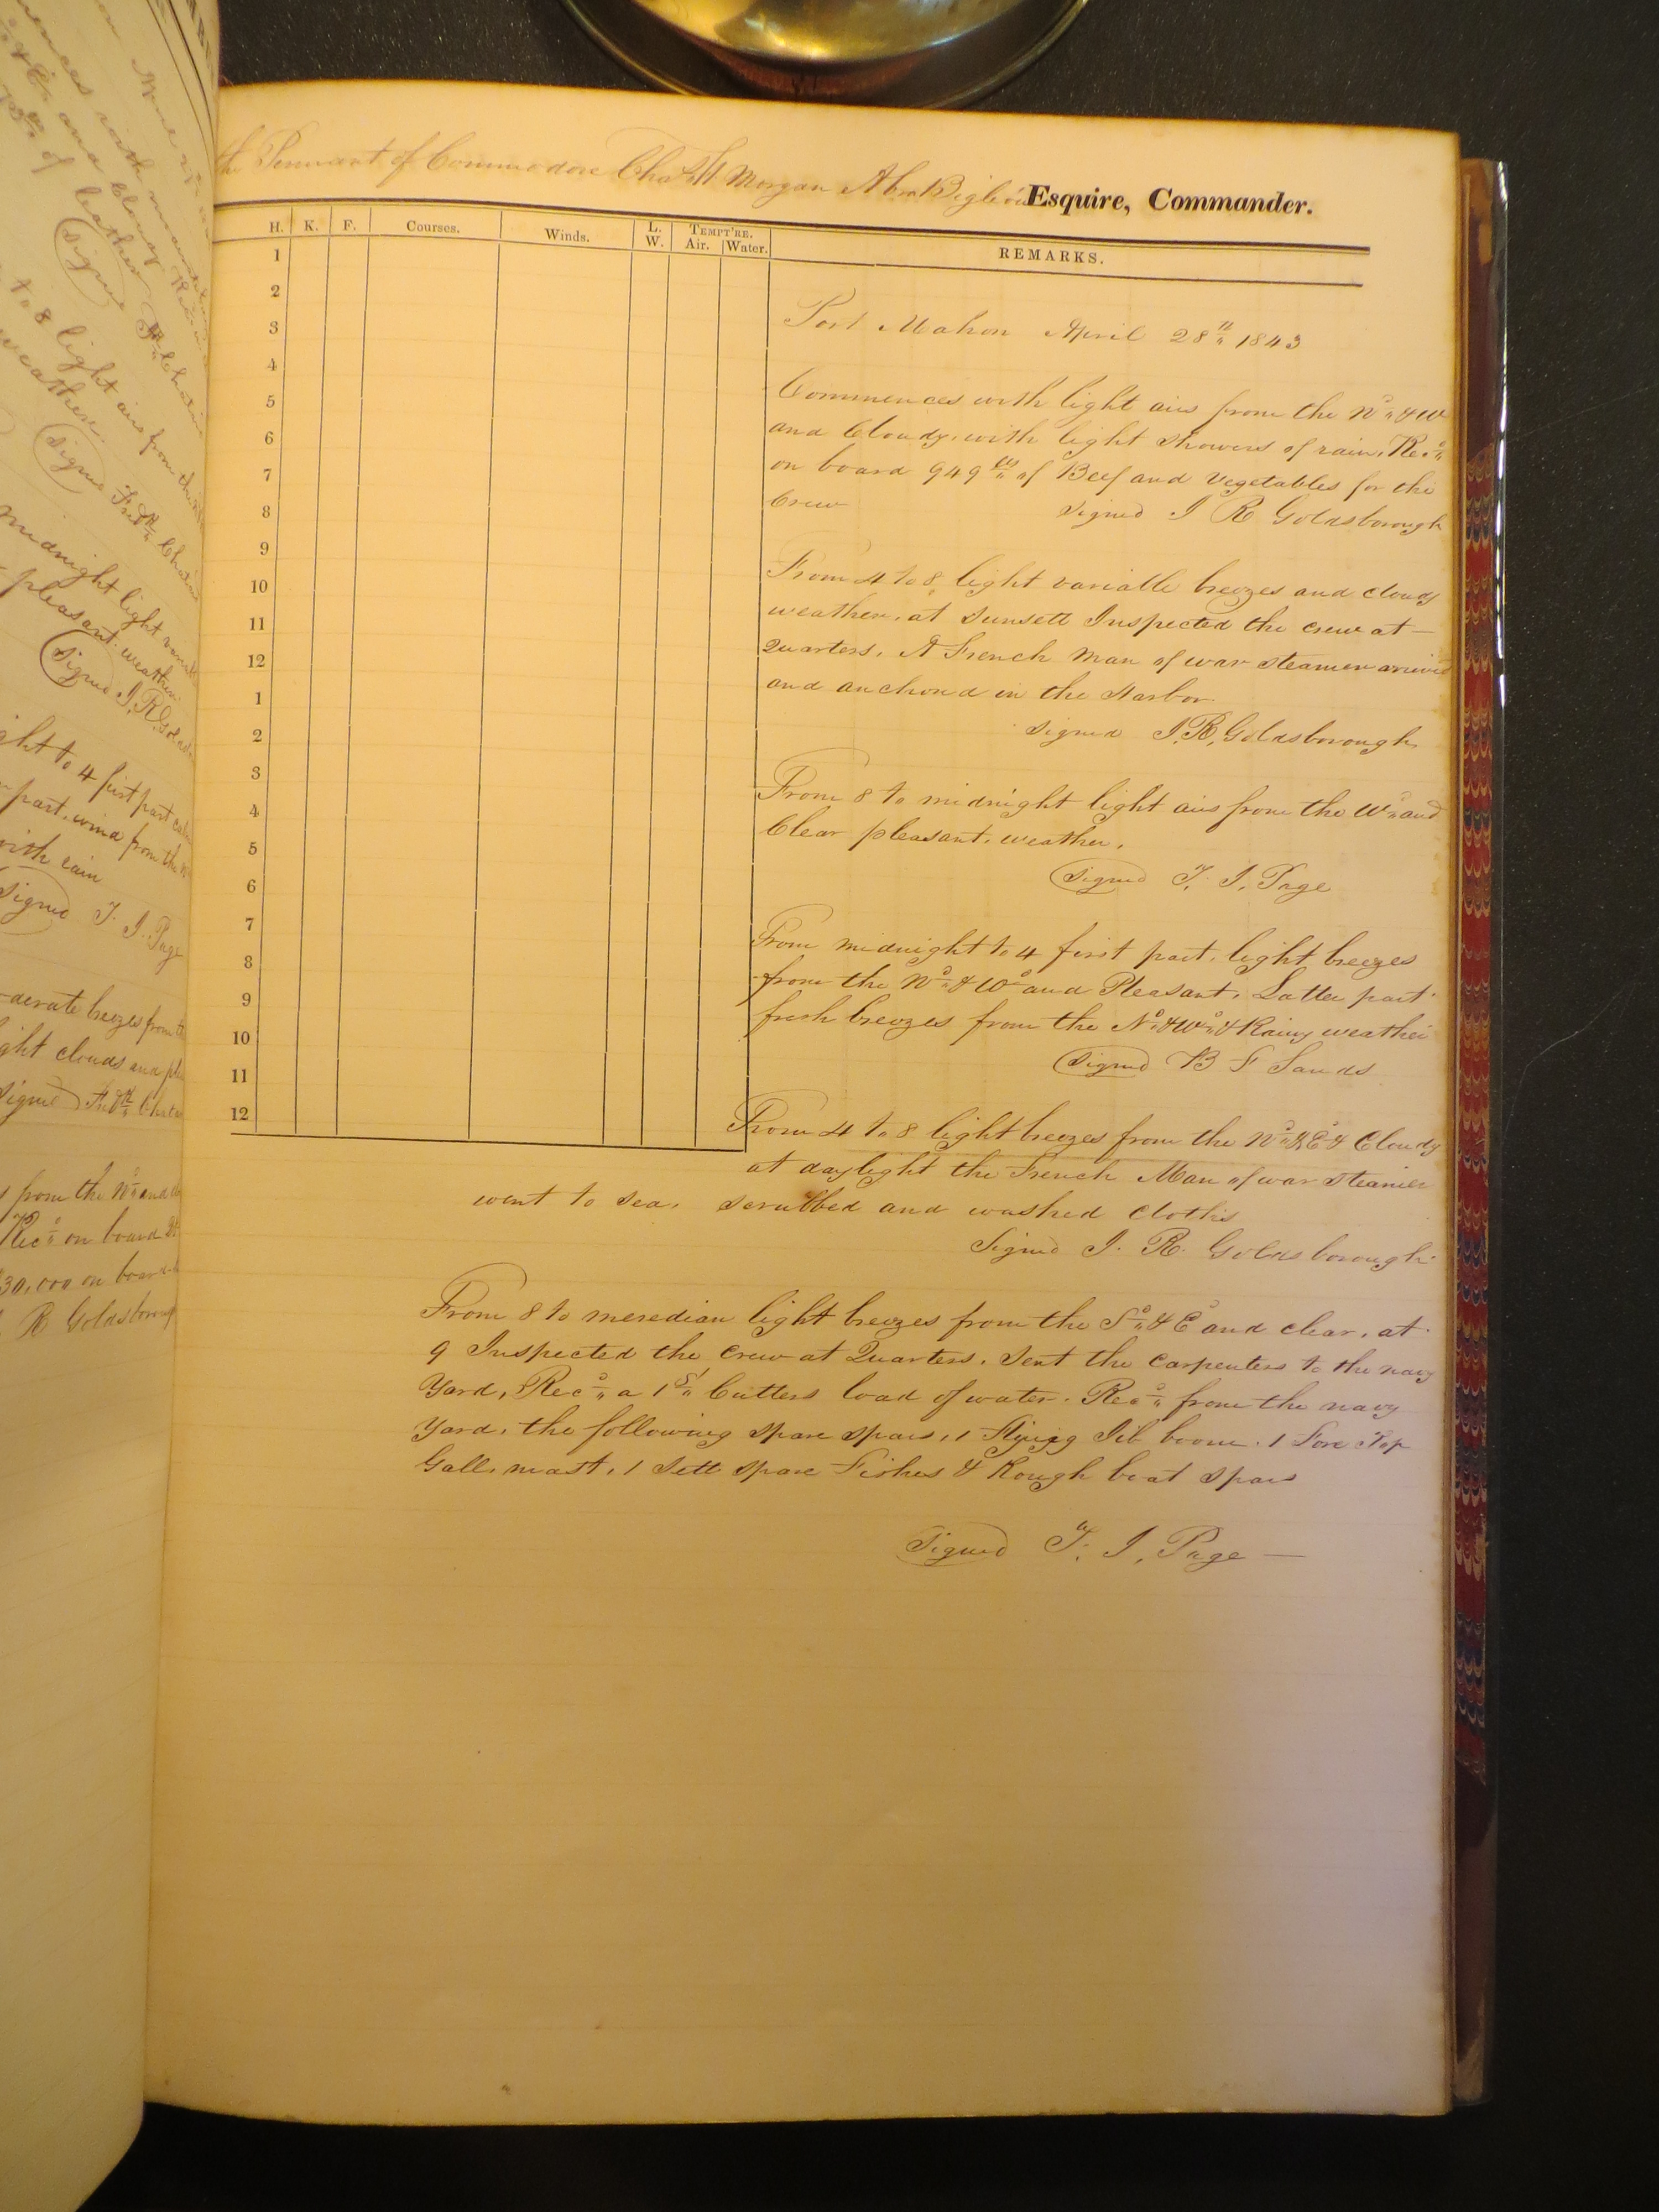 the Pennant of Commodore Chas W Morgan Abm Bigelow Esquire, Commander.
H. K. F. Courses. Winds. L. W. TEMPT'RE. Air. Water. REMARKS.
1
2
3
4
5
6
7
8
9
10
11
12
1
2
3
4
5
6
7
8
9
10
11
12
Port Mahon April 28th 1843
Commences with light airs from the Nd & W
and Cloudy, with light showers of rain. Recd
on board 949 lbs of Beef and Vegetables for the
Crew signed J R Goldsborough
From 4 to 8 light variable breezes and cloudy
weather, at Sunsett Inspected the crew at –
Quarters. A French Man of war steamer arrived
and anchord in the Harbor
signed J. R. Goldsborough
From 8 to midnight light airs from the Wd and
Clear pleasant. weather.
Signed T. J. Page
From midnight to 4 first part. light breezes
from the Nd & Wd and Pleasant. Latter part
fresh breezes from the Nd & Wd & Rainy weather
Signed B F Sands
From 4 to 8 light breezes from the Nd & Ed & Cloudy
at daylight the French Man of war steamer
went to sea. scrubbed and washed cloths
Signed J. R. Goldsborough
From 8 to meredian light breezes from the Sd & Ed and clear, at
9 Inspected the crew at Quarters. Sent the carpenters to the navy
Yard, Recd a 1st Cutters load of water. Recd from the navy
Yard, the following spare spars, 1 Flying Jib boom. 1 Fore Top
Gall. mast, 1 Sett spare Fishes & Rough boat spars
Signed T. J. Page –
to 8 light airs from the
weather.
Signed Fredk
midnight light
pleasant. weather
Signed J. R. Golds
ght to 4 first part
part. wind from the
with rain
Signed T. J. Page
derate breezes from
ght clouds and
Signed Fredk
from the Nd and
Recd on board
30,000 on board
R Goldsborough